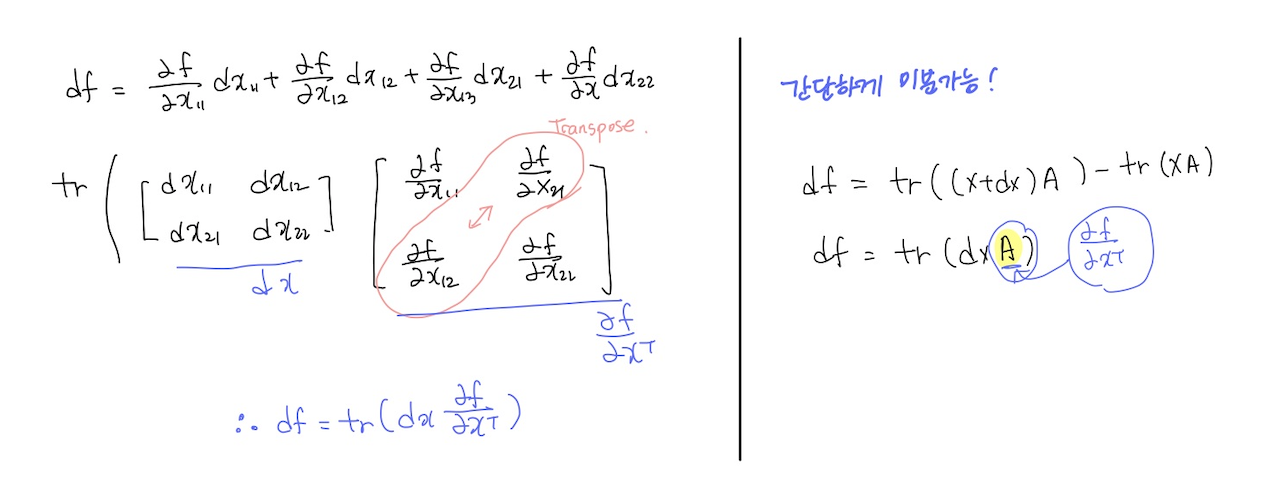 df = ∂f/∂x₁₁ dx₁₁ + ∂f/∂x₁₂ dx₁₂ + ∂f/∂x₁₃ dx₂₁ + ∂f/∂x dx₂₂
Transpose.
tr ( [ dx₁₁ dx₁₂ ] [ ∂f/∂x₁₁ ∂f/∂x₂₁ ]
[ dx₂₁ dx₂₂ ] [ ∂f/∂x₁₂ ∂f/∂x₂₂ ]
dx
∂f/∂xᵀ
∴ df = tr(dx ∂f/∂xᵀ)
간단하게 이용가능!
df = tr((x+dx)A) - tr(XA)
df = tr(dxA) ∂f/∂xᵀ